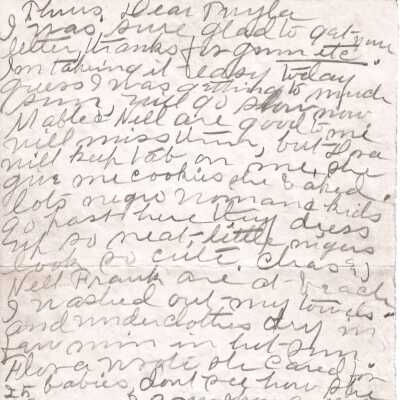 Thurs, Dear
I was sure glad to get your
letter, thanks for gum etc
Im taking it easy today
guess I was getting to much
sun, will go slow now
Mable & Nell are good to me
will miss them, but Flora
will keep tab on me, she
gave me cookies she baked
lots negro woman & kids
go past here they dress
up so neat, little nigers
look so cute. Chas &
Nell Frank are at beach
I washed out my towels
and underclothes dry in
few min in hot sun
Flora wrote she cared for
25 babies, dont see how she